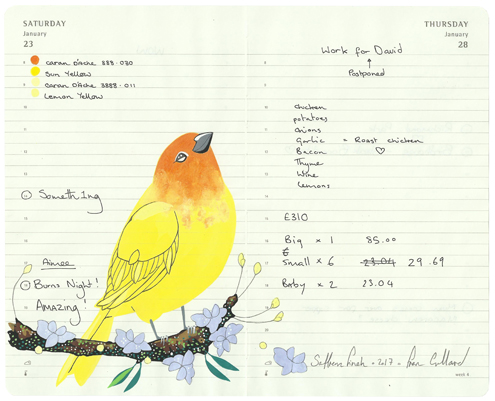 SATURDAY
January
23
Caran D'Ache 888.030
Sun Yellow
Caran D'Ache 3888.011
Lemon Yellow
Something
Aimee
Burns Night!
Amazing!
THURSDAY
January
28
Work for David
Postponed
chicken
potatoes
onions
Garlic = Roast chicken
Bacon
Thyme
Wine
Lemons
£310
Big x 1 85.00
small x 6 23.04 29.69
Baby x 2 23.04
Saffron Finch - 2017 - Fran
week 4